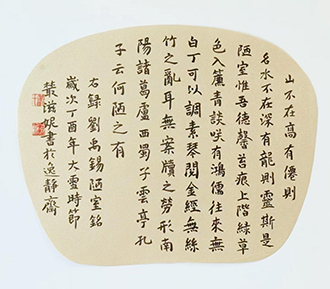 山不在高有僊則
名水不在深有龍則靈斯是
陋室惟吾德馨苔痕上階綠草
色入簾青談咲有鴻儒往來無
白丁可以調素琴閱金經無絲
竹之亂耳無案牘之勞形南
陽諸葛廬西蜀子雲亭孔
子云何陋之有
右錄劉禹錫陋室銘
歲次丁酉年大雪時節
滋妮書於逸靜齋